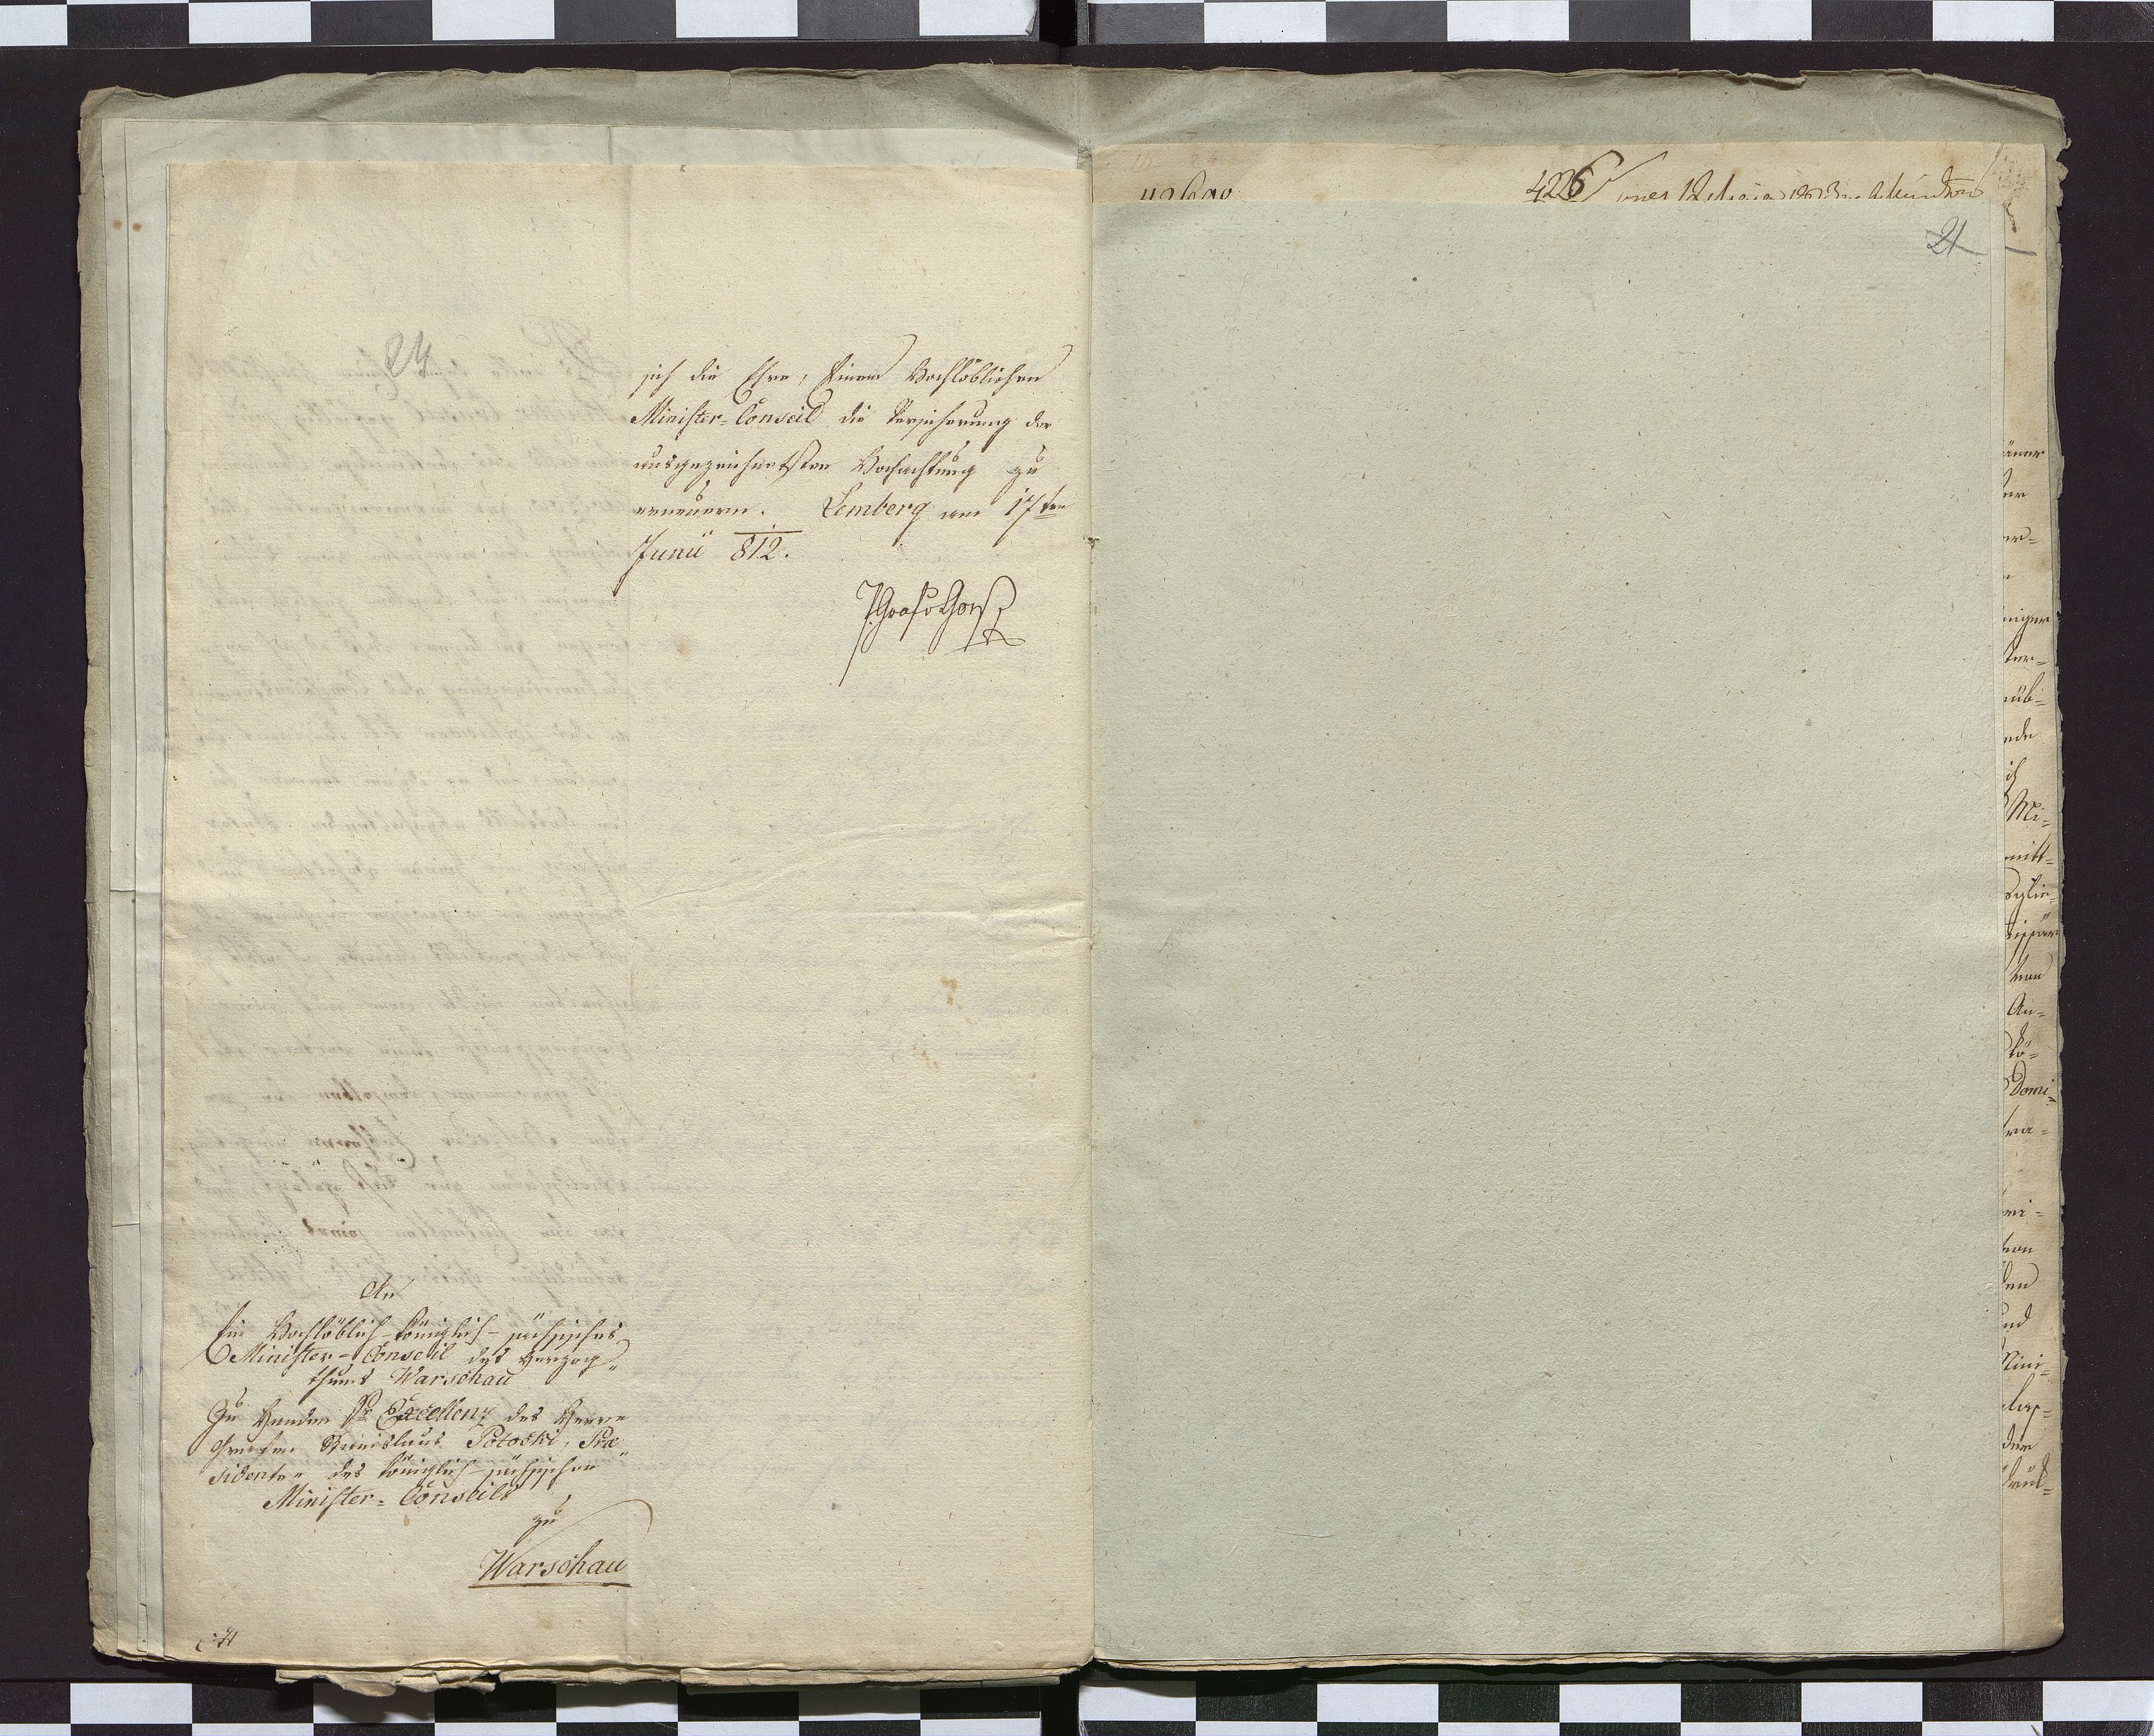 24
sich die Ehre, Einem Hochlöblichen
Minister-Conseil die Versicherung der
ausgezeichnetsten Hochachtung zu
erneuern. Lemberg am 17ten
Junii 812.
An
Ein Hochlöblich-königlich-sächsisches
Minister-Conseil des Herzog„
thums Warschau
Zu Handen Sr Excellenz des Herrn
Grafen Stanislaus Potocki, Præ„
sidenten des königlich-sächsischen
Minister-Conseils
zu
Warschau
4226
21
iger
ter=
üb=
nde
Mi=
mitt=
An=
kö=
Domi=
nd
Mini=